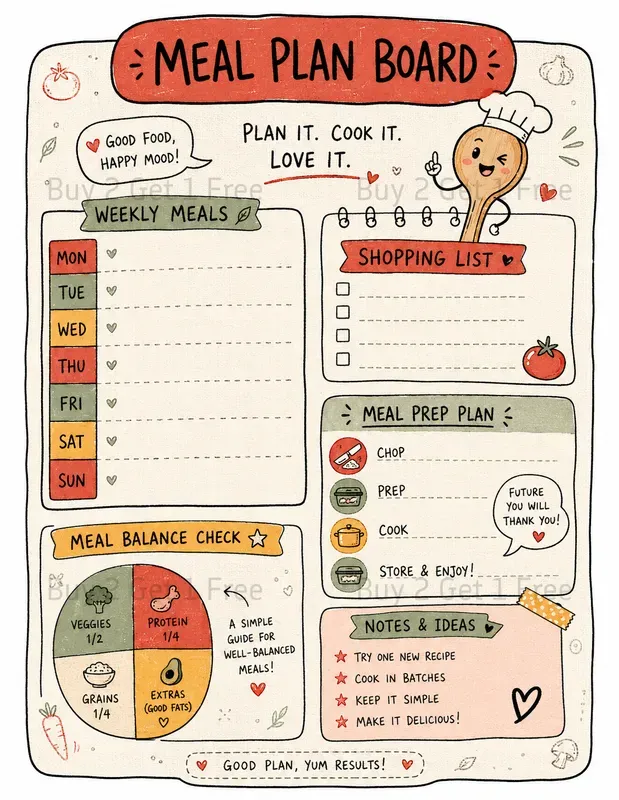 MEAL PLAN BOARD
GOOD FOOD,
HAPPY MOOD!
PLAN IT. COOK IT.
LOVE IT.
Buy 2 Get 1 Free
Buy 2 Get 1 Free
WEEKLY MEALS
MON
TUE
WED
THU
FRI
SAT
SUN
SHOPPING LIST
MEAL PREP PLAN
CHOP
PREP
COOK
STORE & ENJOY!
FUTURE
YOU WILL
THANK YOU!
MEAL BALANCE CHECK
VEGGIES
1/2
PROTEIN
1/4
GRAINS
1/4
EXTRAS
(GOOD FATS)
A SIMPLE
GUIDE FOR
WELL-BALANCED
MEALS!
Buy 2 Get 1 Free
Buy 2 Get 1 Free
NOTES & IDEAS
TRY ONE NEW RECIPE
COOK IN BATCHES
KEEP IT SIMPLE
MAKE IT DELICIOUS!
GOOD PLAN, YUM RESULTS!